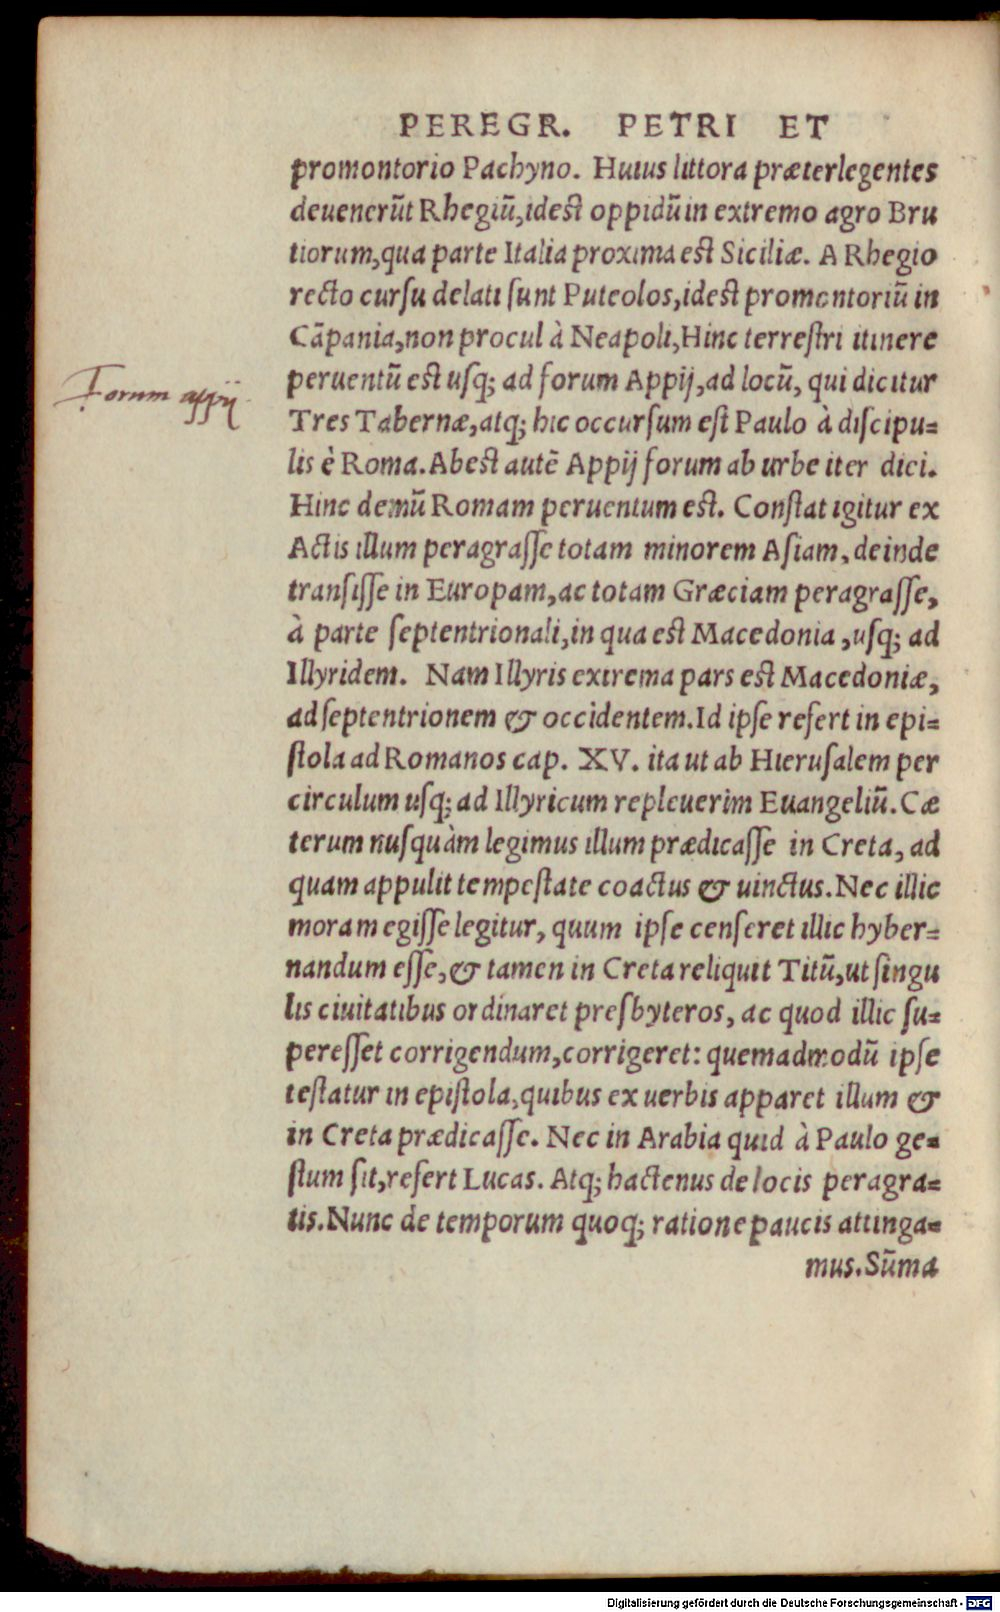 PEREGR. PETRI ET
promontorio Pachyno. Huius littora præterlegentes
deuenerūt Rhegiū, idest oppidū in extremo agro Bru
tiorum, qua parte Italia proxima est Siciliæ. A Rhegio
recto cursu delati sunt Puteolos, idest promontoriū in
Cāpania, non procul à Neapoli, Hinc terrestri itinere
peruentū est usq; ad forum Appij, ad locū, qui dicitur
Tres Tabernæ, atq; hic occursum est Paulo à discipu=
lis è Roma. Abest autē Appij forum ab urbe iter dici.
Hinc demū Romam peruentum est. Constat igitur ex
Actis illum peragrasse totam minorem Asiam, deinde
transisse in Europam, ac totam Græciam peragrasse,
à parte septentrionali, in qua est Macedonia, usq; ad
Illyridem. Nam Illyris extrema pars est Macedoniæ,
ad septentrionem & occidentem. Id ipse refert in epi=
stola ad Romanos cap. XV. ita ut ab Hierusalem per
circulum usq; ad Illyricum repleuerim Euangeliū. Cæ
terum nusquàm legimus illum prædicasse in Creta, ad
quam appulit tempestate coactus & uinctus. Nec illic
moram egisse legitur, quum ipse censeret illic hyber=
nandum esse, & tamen in Creta reliquit Titū, ut singu
lis ciuitatibus ordinaret presbyteros, ac quod illic su=
peresset corrigendum, corrigeret: quemadmodū ipse
testatur in epistola, quibus ex uerbis apparet illum &
in Creta prædicasse. Nec in Arabia quid à Paulo ge=
stum sit, refert Lucas. Atq; hactenus de locis peragra=
tis. Nunc de temporum quoq; ratione paucis attinga=
mus. Sūma
Forum appij
Digitalisierung gefördert durch die Deutsche Forschungsgemeinschaft - DFG